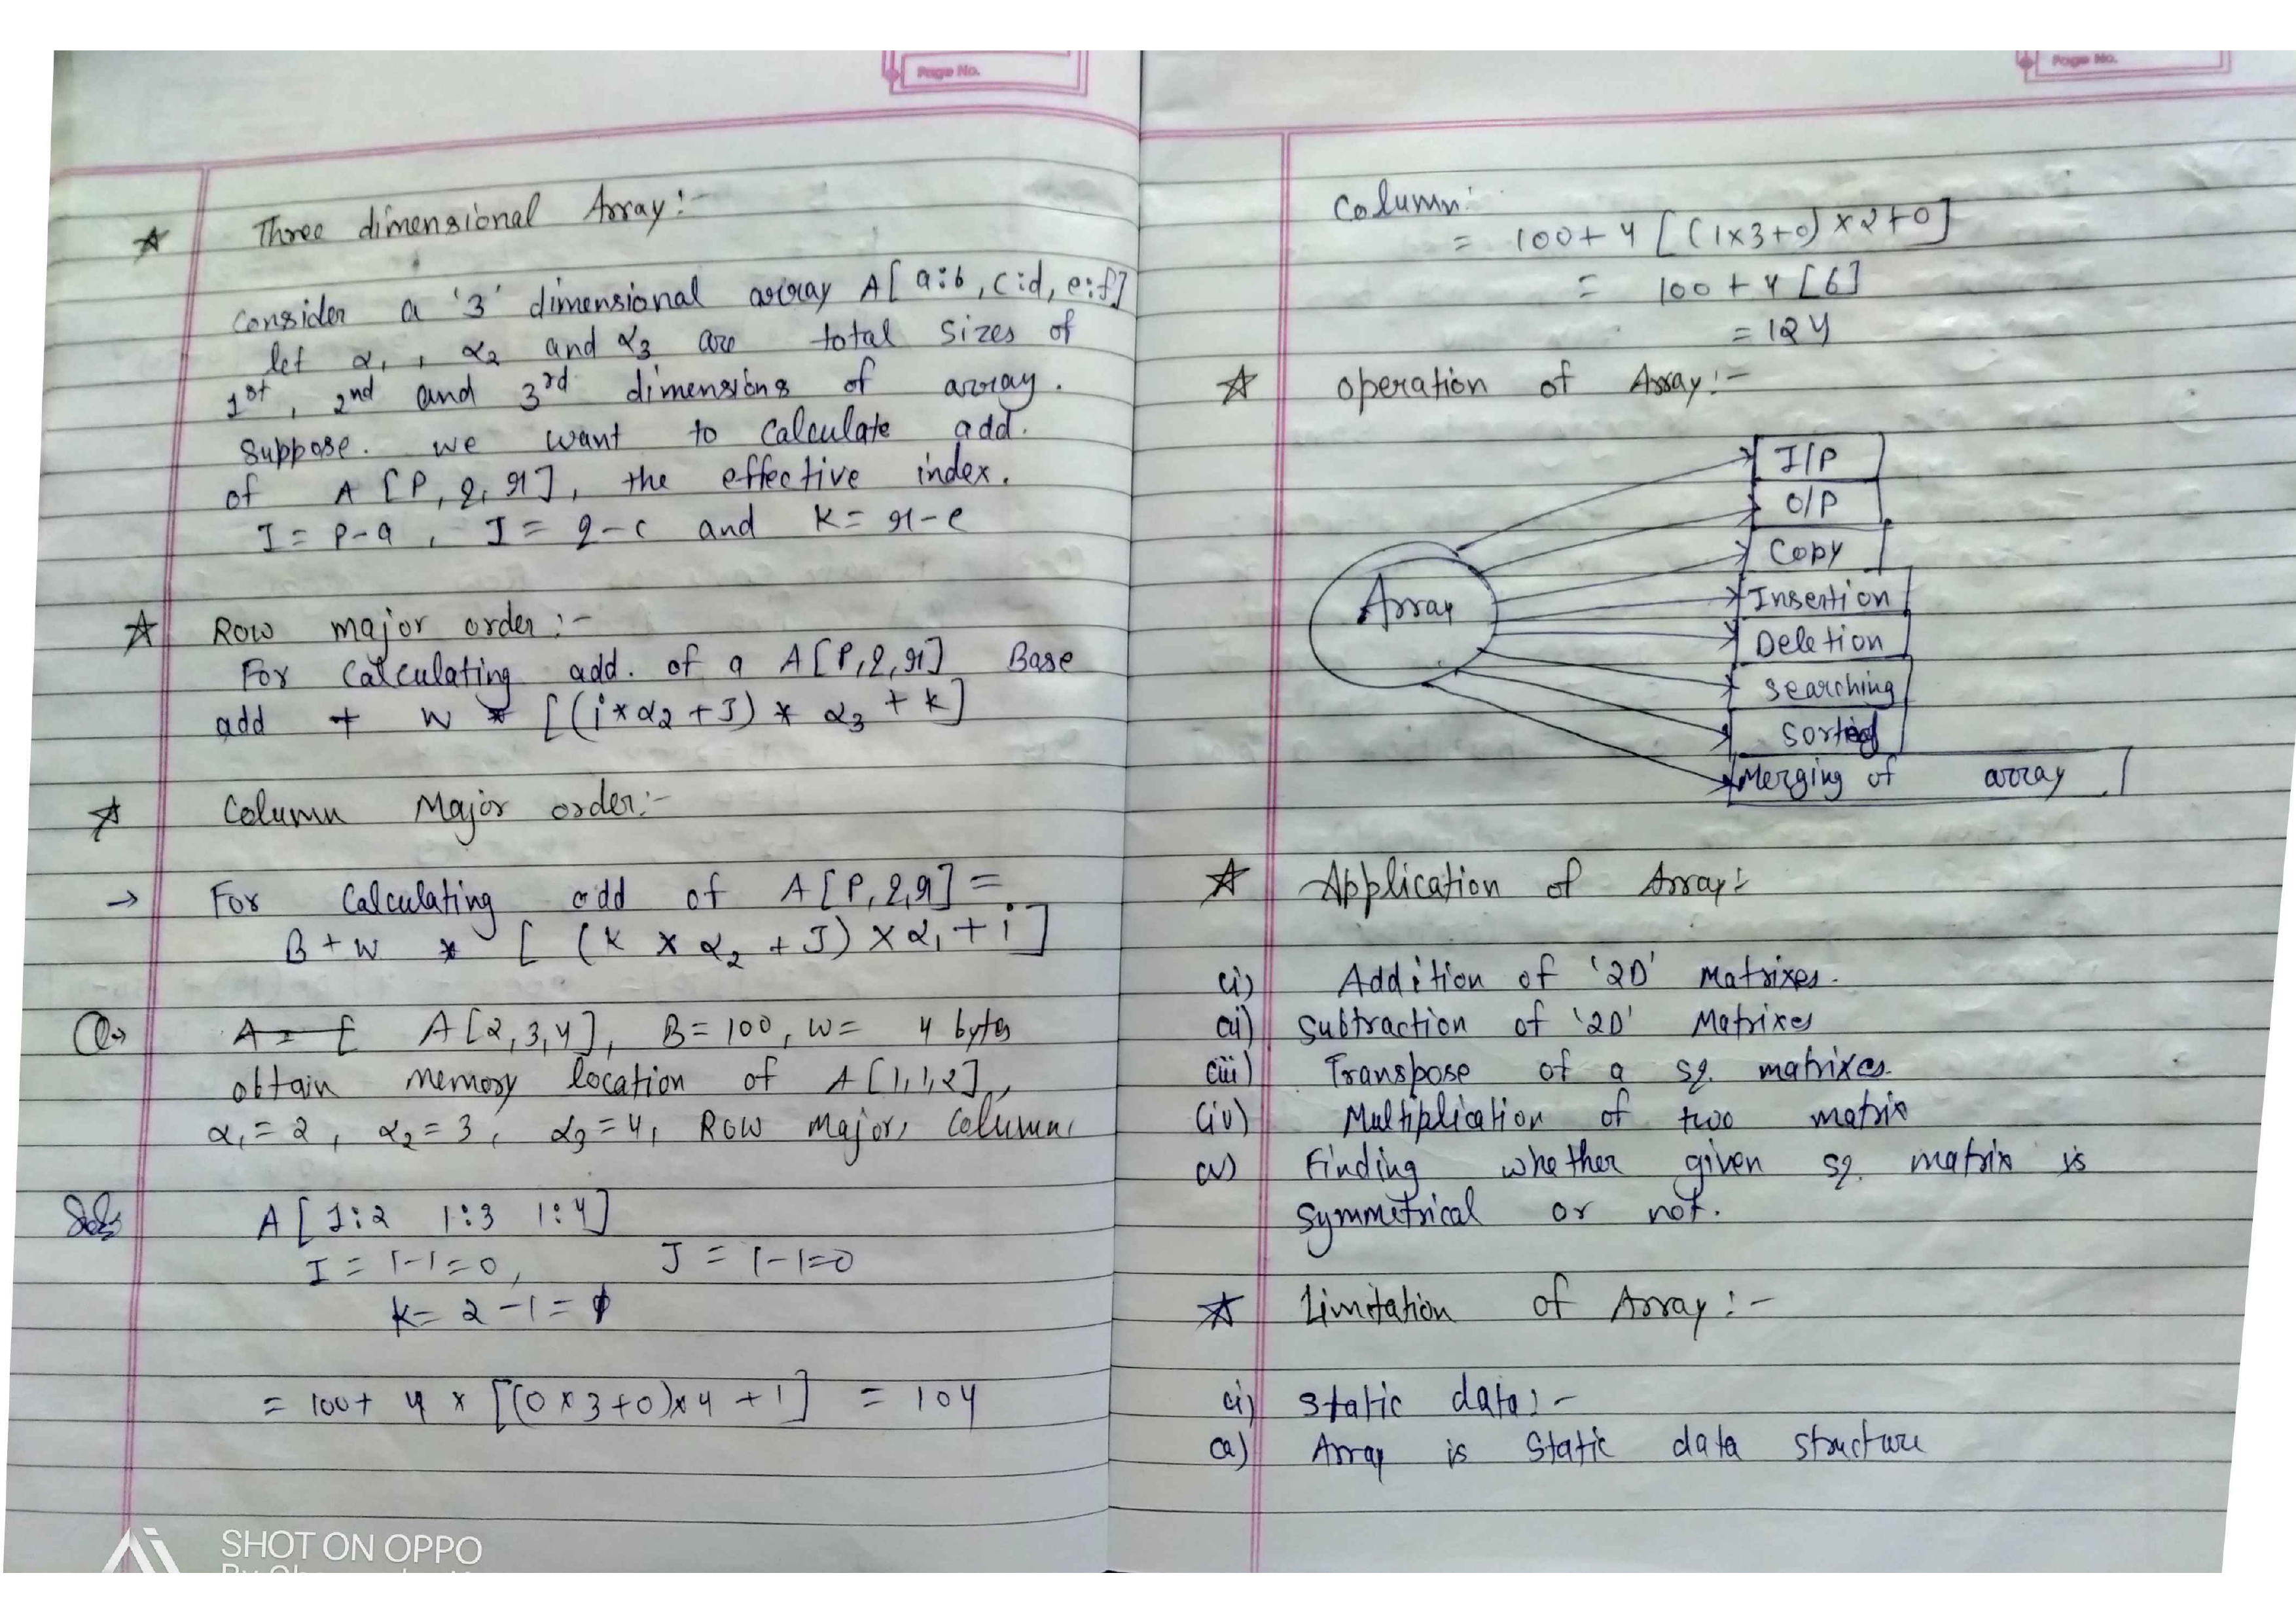 Page No.
☆ Three dimensional Array:-
Consider a '3' dimensional array A[a:b, c:d, e:f]
let α₁, α₂ and α₃ are total sizes of
1st, 2nd and 3rd dimensions of array.
Suppose. we want to calculate add.
of A[P,q,r], the effective index.
I = p-a, J = q-c and K = r-e
☆ Row major order:-
For Calculating add. of a A[P,q,r] Base
add + W * [(i*α₂+J) * α₃ + k]
☆ Column Major order:-
→ For Calculating add of A[P,q,r] =
B+W * [(K × α₂ + J) × α₁ + i]
Q→ A = [ A[2,3,4], B=100, W= 4 bytes
obtain memory location of A[1,1,2],
α₁=2, α₂=3, α₃=4, Row major, Column
Sol: A[1:2 1:3 1:4]
I = 1-1=0, J = 1-1=0
K= 2-1=1
= 100+ 4 × [(0×3+0)×4 +1] = 104
SHOT ON OPPO
Page No.
Column:
= 100+4[(1×3+0)×2+0]
= 100+4[6]
=124
☆ Operation of Array:-
I/P
O/P
Copy
Array
Insertion
Deletion
Searching
Sorting
Merging of array
☆ Application of Array:-
(i) Addition of '2D' Matrixes.
(ii) Subtraction of '2D' Matrixes
(iii) Transpose of a sq. matrixes.
(iv) Multiplication of two matrix
(v) Finding whether given sq. matrix is
symmetrical or not.
☆ Limitation of Array:-
(i) Static data:-
(a) Array is Static data structure